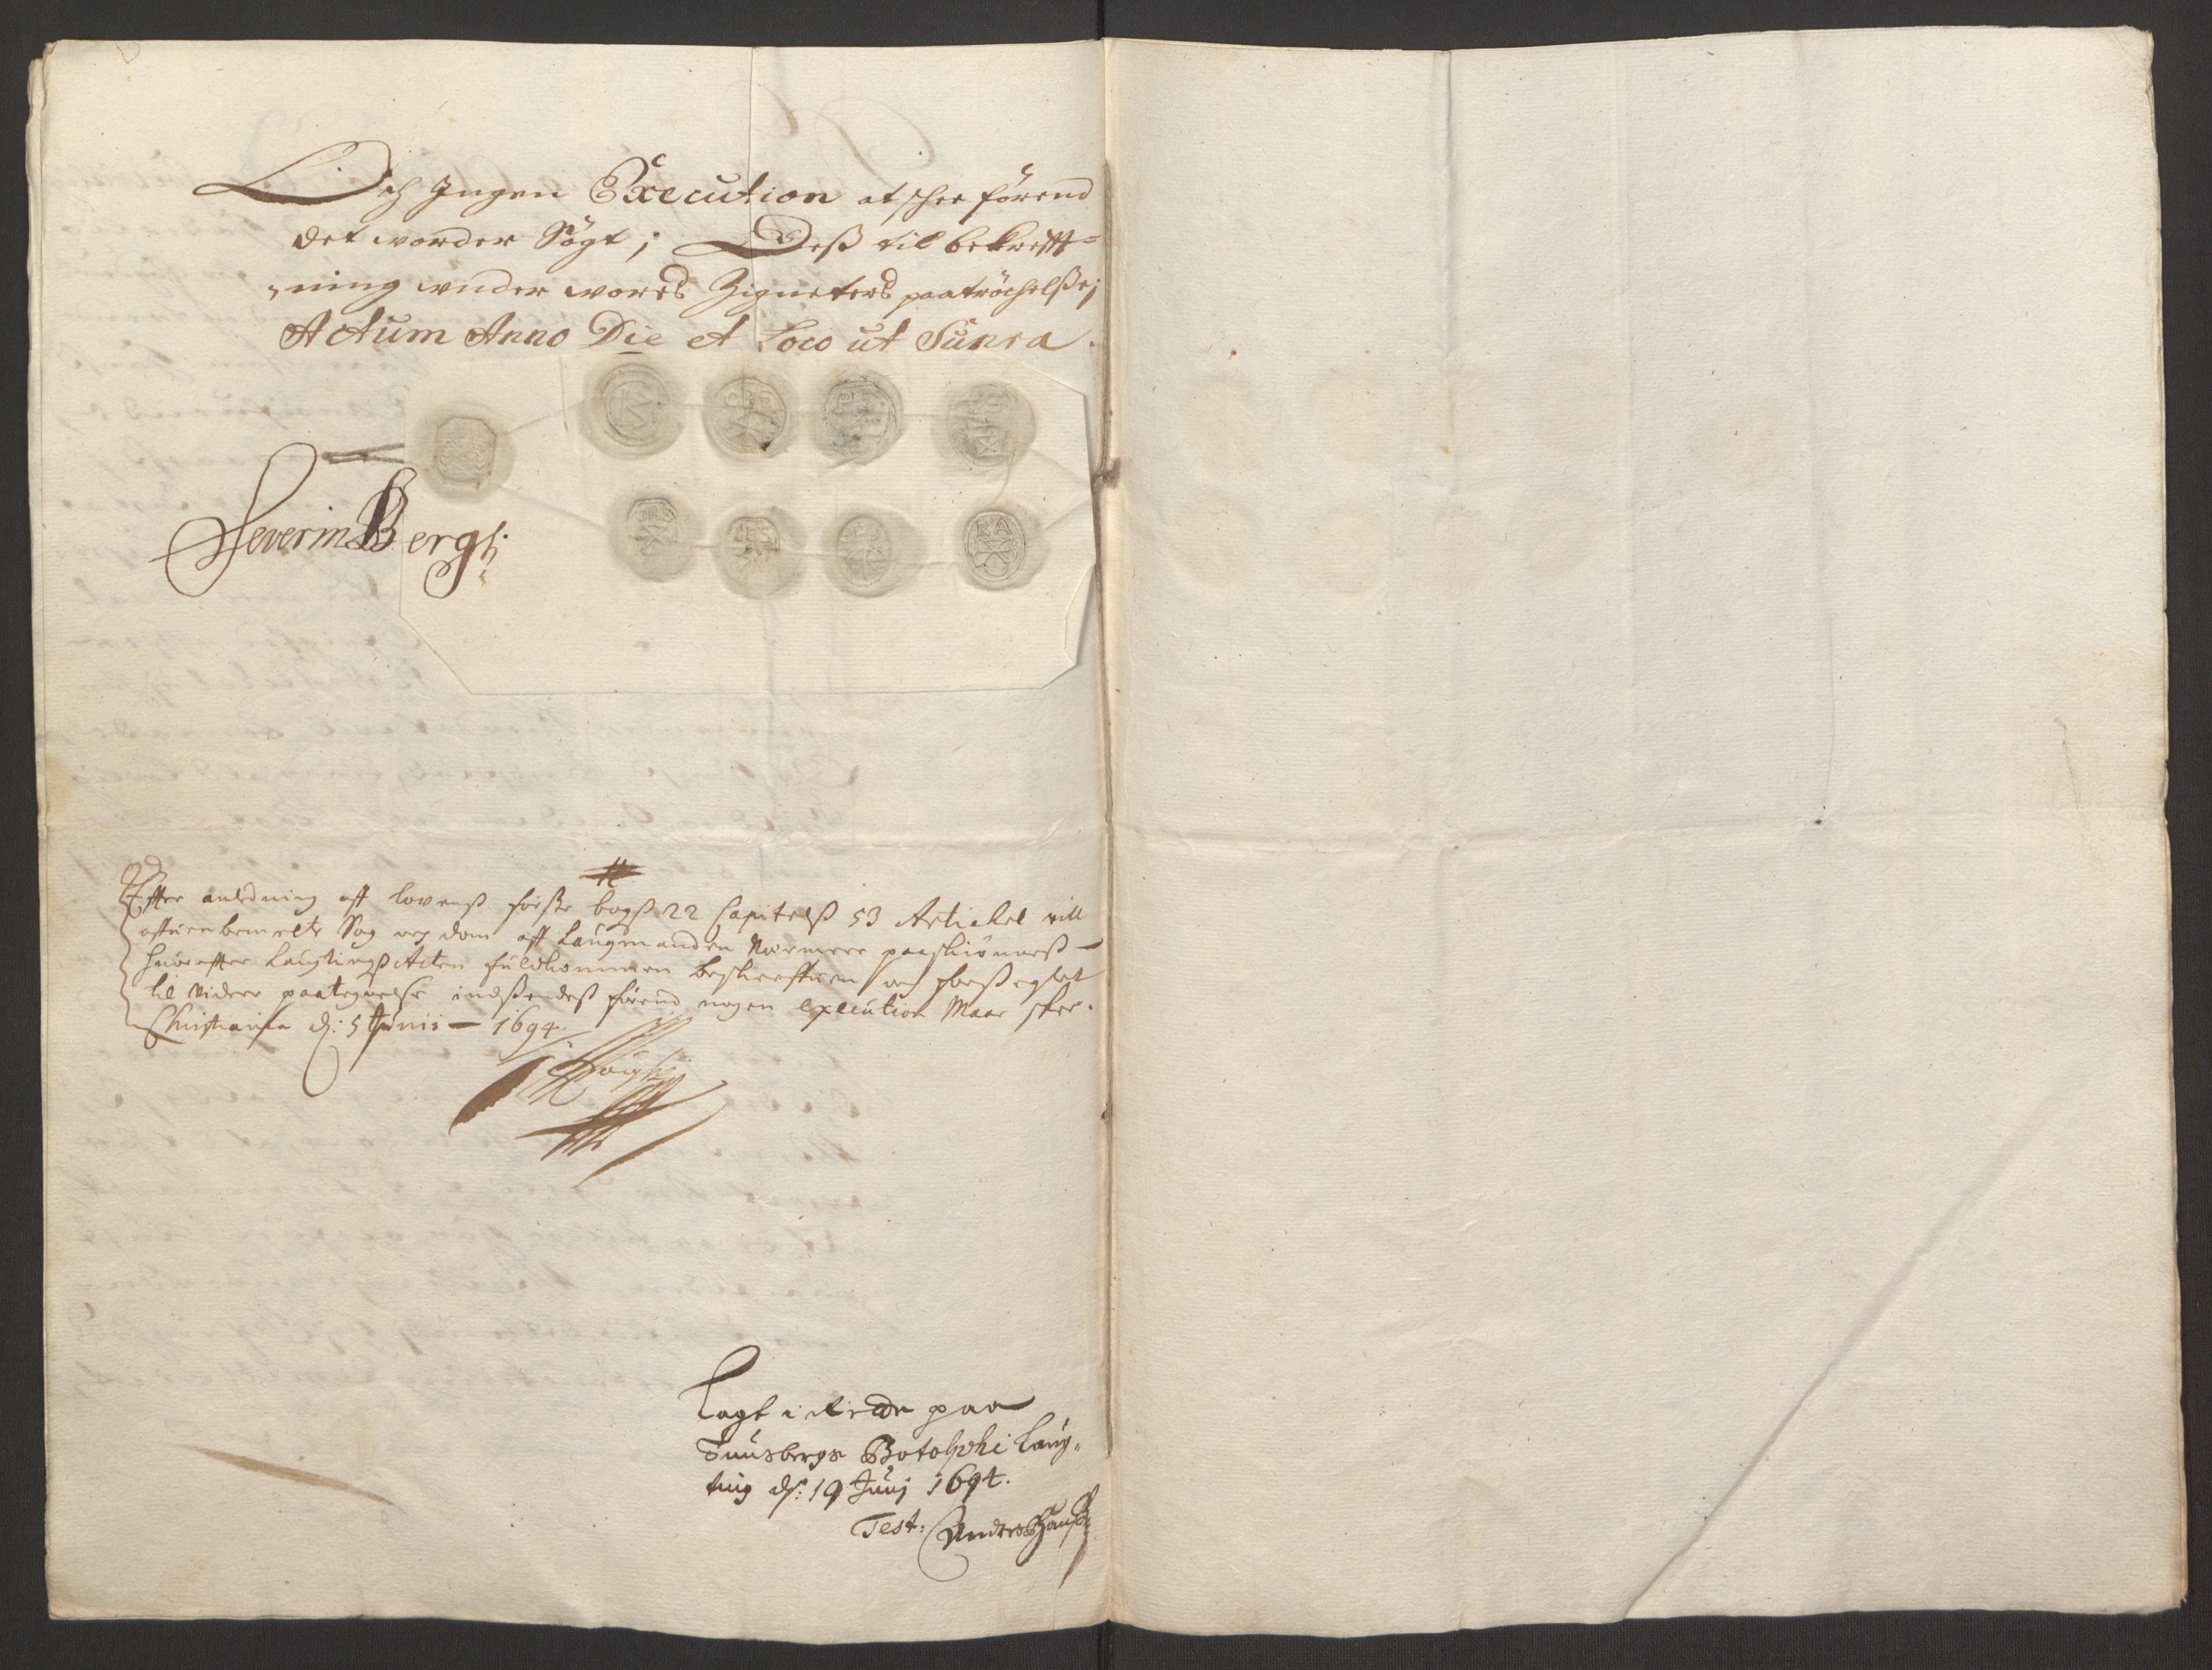 Och Ingen Execution at schee førend
det worder Søgt; Deß til bekrefft-
ning under wores Zigneters paatrøchelße;
Actum Anno Die et Loco ut Supra.
Severin Bergh:
Effter anledning aff lovenß første bogß 22 Capitelß 53 Artichel vill
ofvenbemelte Sag og dom aff Laugmanden Nermere paaskiønneß
huorefter Laugtingß Acten fuldkommen beskreffven och forßeglet
til videre paategnelse indßendeß førend nogen execution Maae skee.
Christiania d: 5 Junii 1694.
Lagt i Rede paa
Tunsbergs Botolphi Laug-
ting ds: 19 Junj 1694.
Test: Anders Hanß
RA